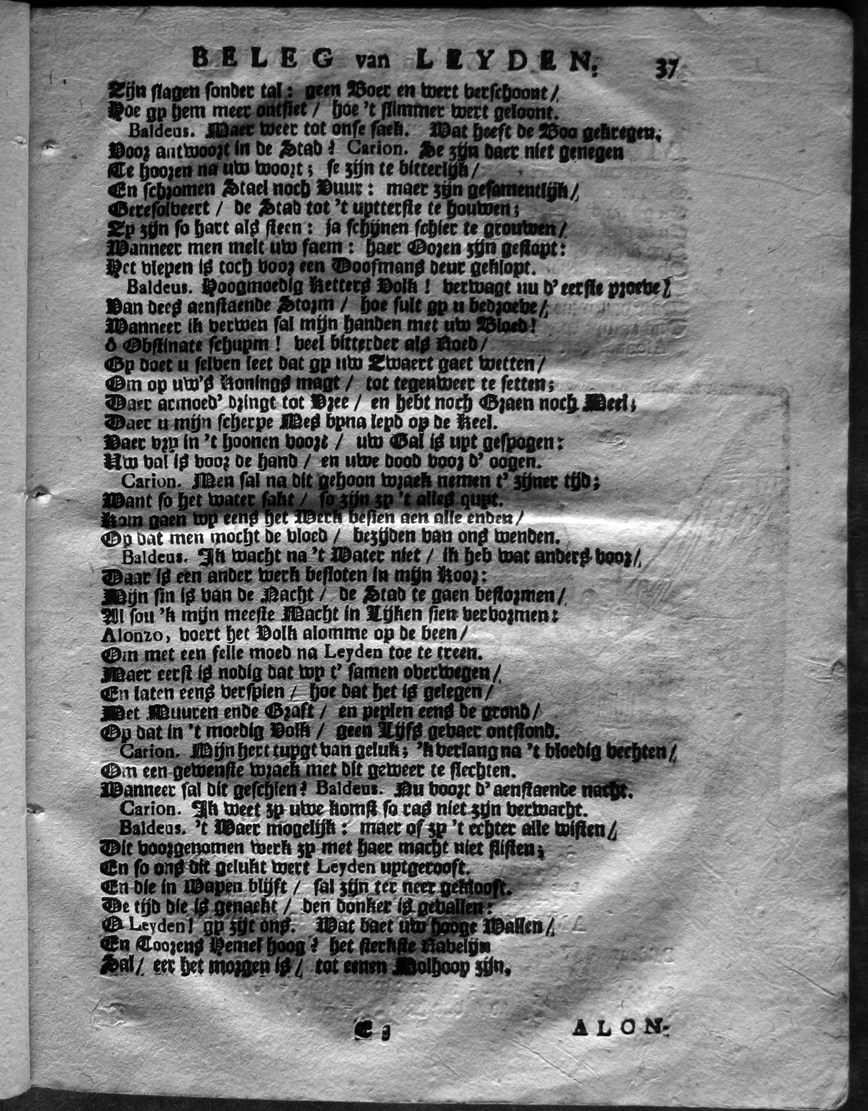 BELEG van LEYDEN. 37
Zijn slagen sonder tal: geen Boer en wert verschoont/
Hoe gy hem meer ontsiet / hoe 't slimmer wert geloont.
Baldeus. Maer weer tot onse saek. Wat heeft de Boo gekregen,
Voor antwoort in de Stad? Carion. Se zijn daer niet genegen
Te hooren na uw woort; se zijn te bitterlijk/
En schromen Stael noch Vuur: maer zijn gesamentlijk/
Geresolveert / de Stad tot 't uptterste te houwen;
Zy zijn so hart als steen: ja schijnen schier te grouwen/
Wanneer men melt uw faem: haer Ooren zijn gestopt:
Het vlepen is toch voor een Doofmans deur geklopt.
Baldeus. Hoogmoedig Ketters Volk! verwagt nu d' eerste proeve/
Van dees aenstaende Storm / hoe sult gy u bedroeve/
Wanneer ik verwen sal mijn handen met uw Bloed!
ô Obstinate schupm! veel bitterder als Roed/
Gy doet u selven leet dat gy uw Zwaert gaet wetten/
Om op uw's Konings magt / tot tegenweer te setten;
Daer armoed' dringt tot Vree / en hebt noch Graen noch Meel;
Daer u mijn scherpe Mes byna leyd op de Keel.
Vaer vry in 't hoonen voort / uw Gal is upt gespogen:
Uw val is voor de hand / en uwe dood voor d' oogen.
Carion. Men sal na dit gehoon wraek nemen t' zijner tijd;
Want so het water sakt / so zijn zy 't alles qupt.
Kom gaen wy eens het Werk besien aen alle enden/
Op dat men mocht de vloed / bezijden van ons wenden.
Baldeus. Ik wacht na 't Water niet / ik heb wat anders voor/
Daar is een ander werk besloten in mijn Koor:
Mijn sin is van de Nacht / de Stad te gaen bestormen/
Al sou 'k mijn meeste Macht in Lijken sien vervormen:
Alonzo, voert het Volk alomme op de been/
Om met een felle moed na Leyden toe te treen.
Maer eerst is nodig dat wy t' samen overwegen/
En laten eens verspien / hoe dat het is gelegen/
Met Muuren ende Graft / en peplen eens de grond/
Op dat in 't moedig Volk / geen Lijfs gevaer ontstond.
Carion. Mijn hert tupgt van geluk; 'k verlang na 't bloedig vechten/
Om een gewenste wraek met dit geweer te slechten.
Wanneer sal dit geschien? Baldeus. Nu voort d' aenstaende nacht.
Carion. Ik weet zy uwe komst so ras niet zijn verwacht.
Baldeus. 't Waer mogelijk: maer of zy 't echter alle wisten/
Dit voorgenomen werk zy met haer macht niet slisten;
En so ons dit gelukt wert Leyden uptgeroost.
En die in Wapen blijft / sal zijn ter neer geklooft.
De tijd die is genaekt / den donker is gevallen:
O Leyden! gy zijt ons. Wat baet uw hooge Wallen/
En Toorens Hemel hoog? het sterkste Rabelijn
Sal/ eer het morgen is/ tot eenen Molhoop zijn.
C 3 ALON-